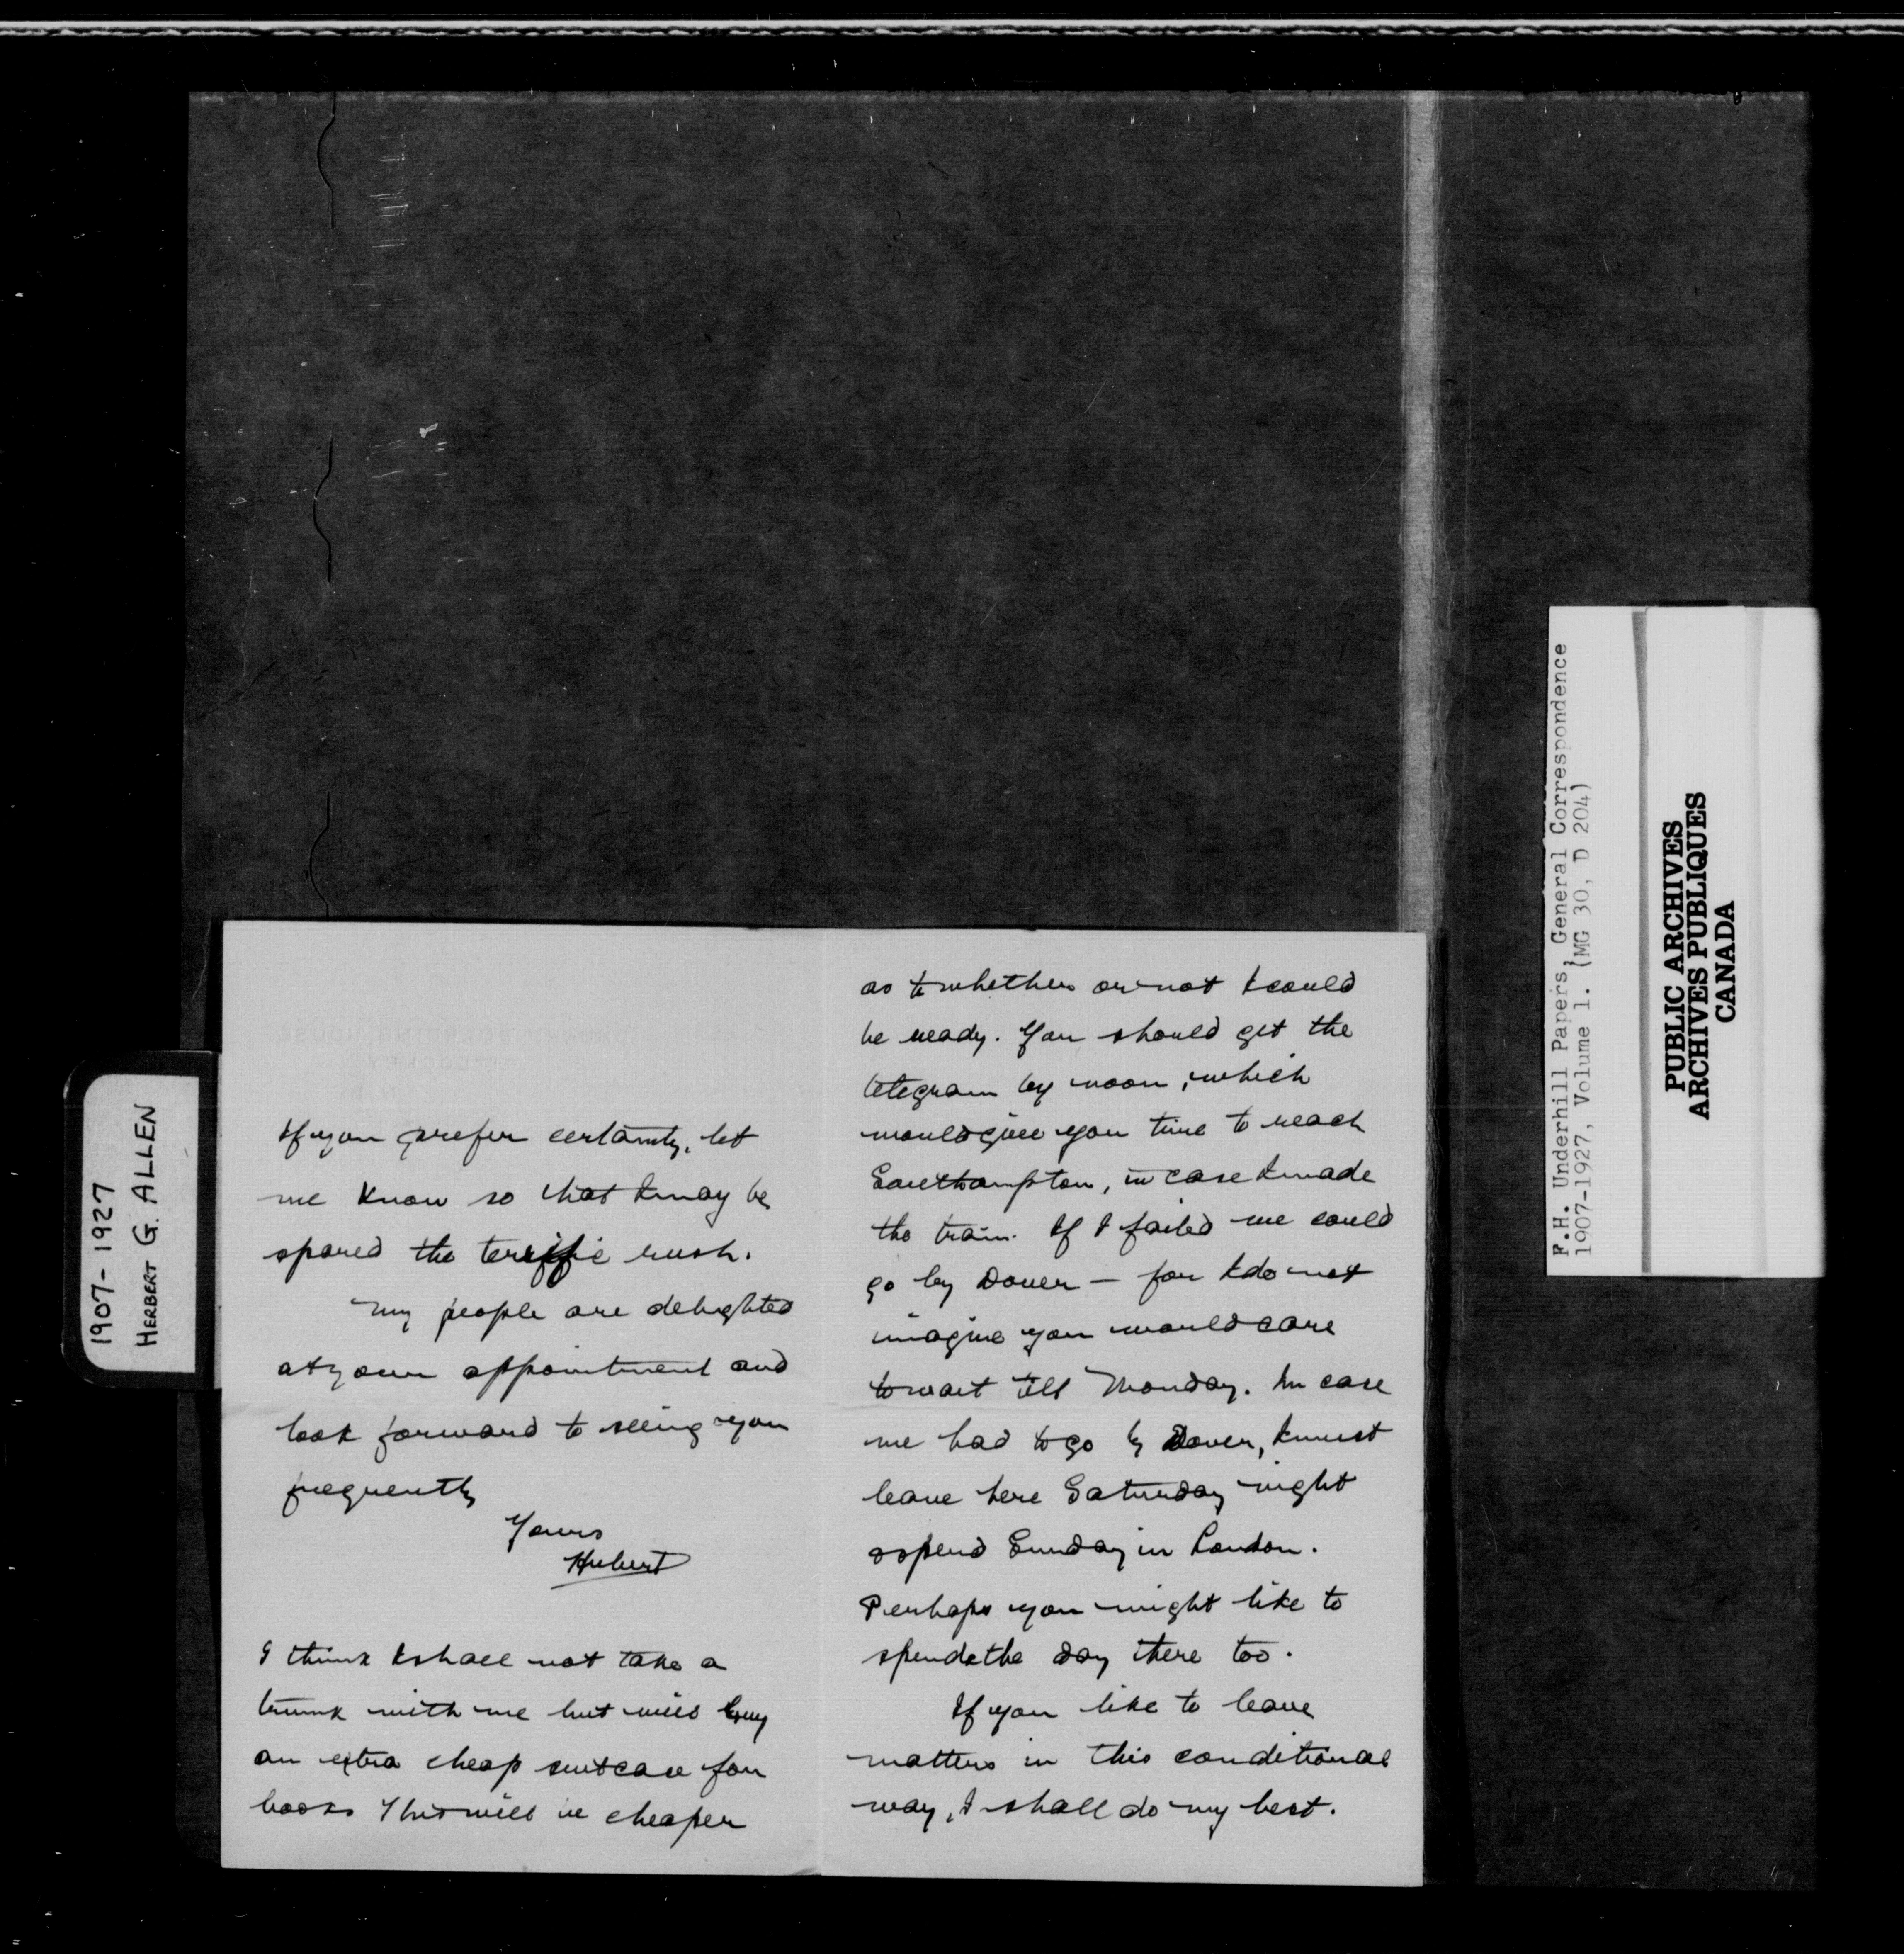 1907-1927
HERBERT G. ALLEN
If you prefer certainty, let
me know so that I may be
spared the terrific rush.
My people are delighted
at your appointment and
look forward to seeing you
frequently
Yours
Hubert
I think I shall not take a
trunk with me but will buy
an extra cheap suitcase for
books This will be cheaper
as to whether or not I could
be ready. You should get the
telegram by noon, which
would give you time to reach
Southampton, in case I made
the train. If I failed we could
go by Dover — for I do not
imagine you would care
to wait till Monday. In case
we had to go by Dover, I must
leave here Saturday night
& spend Sunday in London.
Perhaps you might like to
spend the day there too.
If you like to leave
matters in this conditional
way, I shall do my best.
F.H. Underhill Papers, General Correspondence
1907-1927, Volume 1. (MG 30, D 204)
PUBLIC ARCHIVES
ARCHIVES PUBLIQUES
CANADA